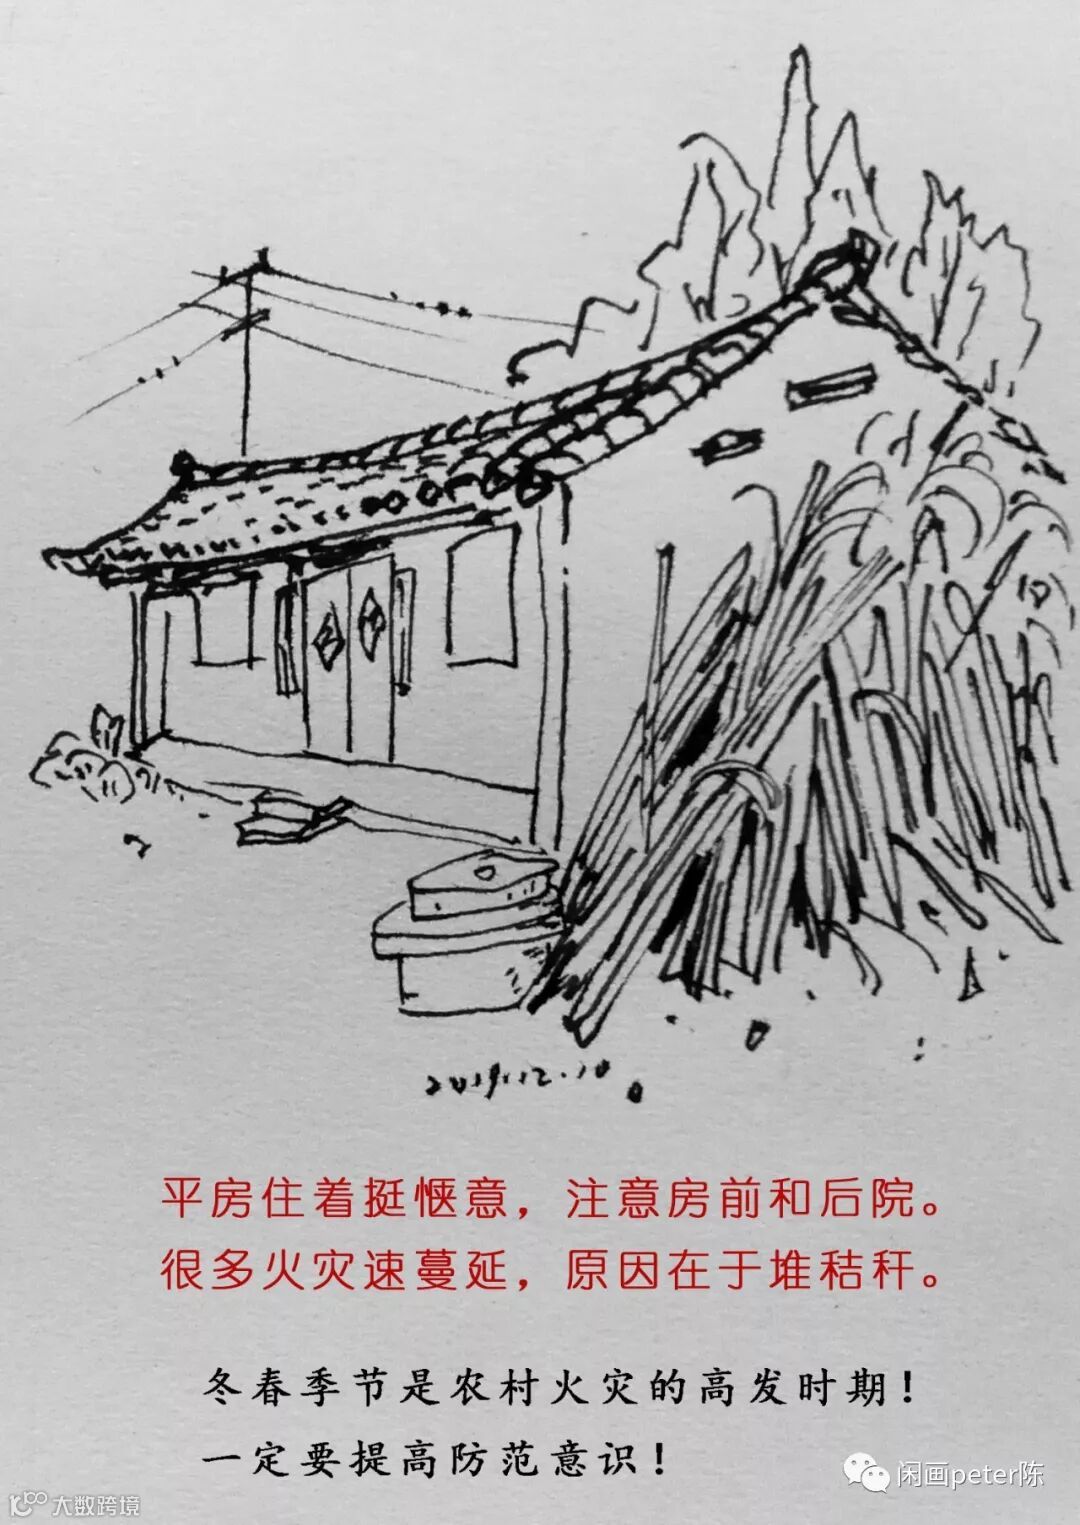 2019.12.10
平房住着挺惬意，注意房前和后院。
很多火灾速蔓延，原因在于堆秸秆。
冬春季节是农村火灾的高发时期！
一定要提高防范意识！
闲画peter陈
大数跨境